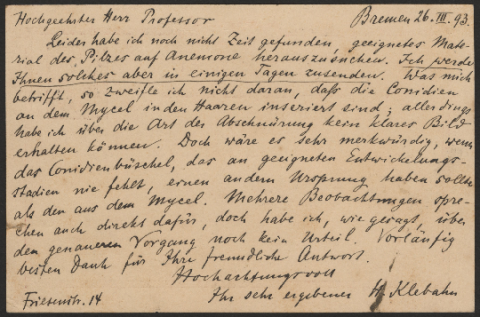 Hochgeehrter Herr Professor Bremen 26. III. 93.
Leider habe ich noch nicht Zeit gefunden, geeignetes Mate-
rial des Pilzes auf Anemone herauszusuchen. Ich werde
Ihnen solches aber in einigen Tagen zusenden. Was mich
betrifft, so zweifle ich nicht daran, daß die Conidien
an dem Mycel in den Haaren inseriert sind; allerdings
habe ich über die Art der Abschnürung kein klares Bild
erhalten können. Doch wäre es sehr merkwürdig, wenn
das Conidienbüschel, das an geeigneten Entwickelungs-
stadien nie fehlt, einen andern Ursprung haben sollte
als den aus dem Mycel. Mehrere Beobachtungen spre-
chen auch direkt dafür, doch habe ich, wie gesagt, über
den genaueren Vorgang noch kein Urteil. Vorläufig
besten Dank für Ihre freundliche Antwort.
Hochachtungsvoll
Ihr sehr ergebener H. Klebahn
Friesenstr. 14